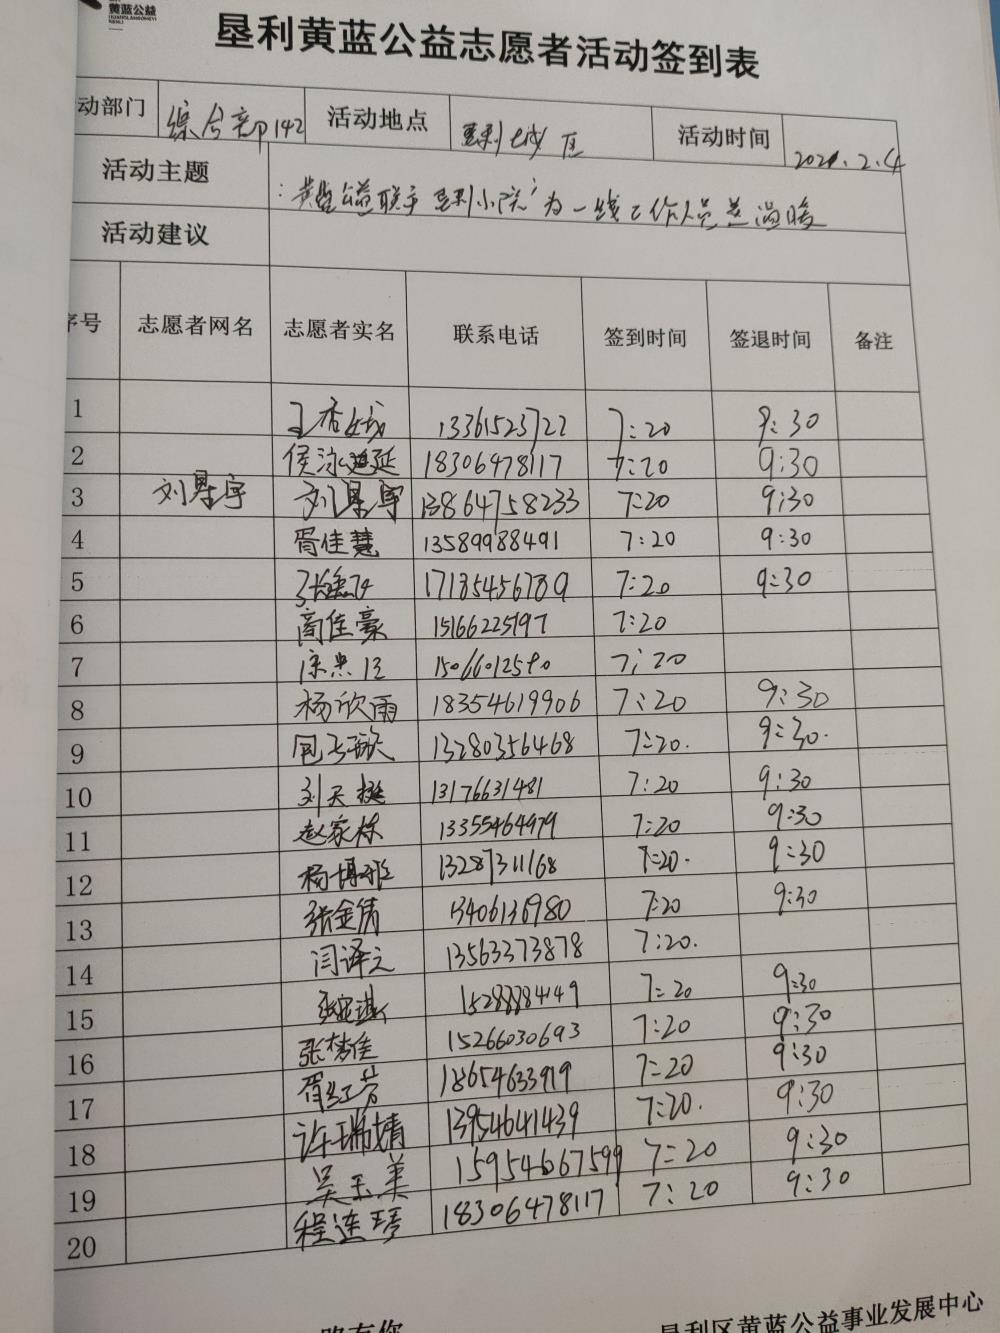 黄蓝公益
垦利黄蓝公益志愿者活动签到表
动部门 综合部142 活动地点 垦利城区 活动时间 2021.2.4
活动主题 :黄蓝公益联手垦利小院"为一线工作人员送温暖
活动建议
序号 志愿者网名 志愿者实名 联系电话 签到时间 签退时间 备注
1 王 13361523722 7:20 9:30
2 侯泳延 18306478117 7:20 9:30
3 刘晨宇 刘晨宇 13864758233 7:20 9:30
4 胥佳慧 13589988491 7:20 9:30
5 17185456789 7:20 9:30
6 高佳豪 15166225197 7:20
7 7:20
8 杨欣雨 18354619906 7:20 9:30
9 13280356468 7:20. 9:30.
10 刘天挺 13176631481 7:20 9:30
11 赵家栋 13355464979 7:20 9:30
12 杨博雅 13287311168 7:20. 9:30
13 张金倩 13406136980 7:20 9:30
14 闫译元 13563373878 7:20.
15 15288884149 7:20 9:30
16 张梦佳 15266030693 7:20 9:30
17 胥红芳 18654633919 7:20 9:30
18 许瑞婧 13954641439 7:20. 9:30
19 吴玉美 15954667599 7:20 9:30
20 程连琴 18306478117 7:20 9:30
路有你
垦利区黄蓝公益事业发展中心